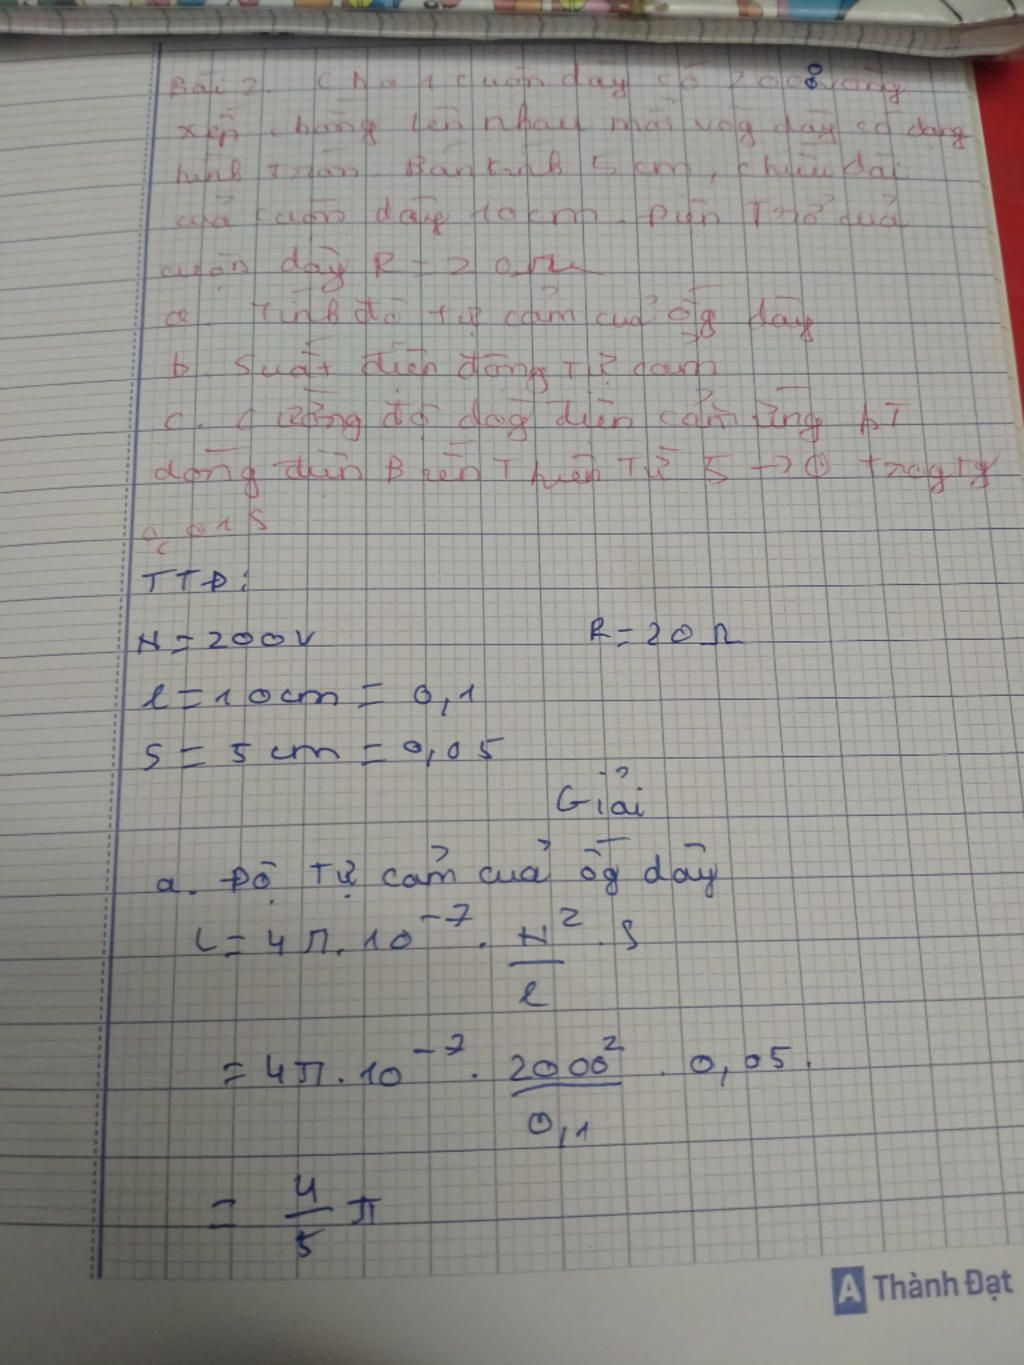 Bài 2. Cho 1 cuộn dây có 2000 vòng
xếp chồng lên nhau mỗi vòg dây có dạng
hình tròn Bán kính 5 cm, chiều dài
cuả cuộn dây 10cm. Điện Trở cuả
cuộn dây R = 20Ω
a. Tính độ tự cảm cuả ốg dây
b. Suất điện động Tự cảm
c. Cường độ dòg điện cảm ứng bT
dòng điện Biến Thiên Từ 5 → 0 trog Tg
0,01 S
TTĐ:
N = 200V R = 20Ω
l = 10cm = 0,1
S = 5 cm = 0,05
Giải
a. Độ Tự cảm cuả ốg dây
L = 4π.10⁻⁷ . N²/l . S
= 4π.10⁻⁷ . 2000²/0,1 . 0,05.
= 4/5 π
A Thành Đạt